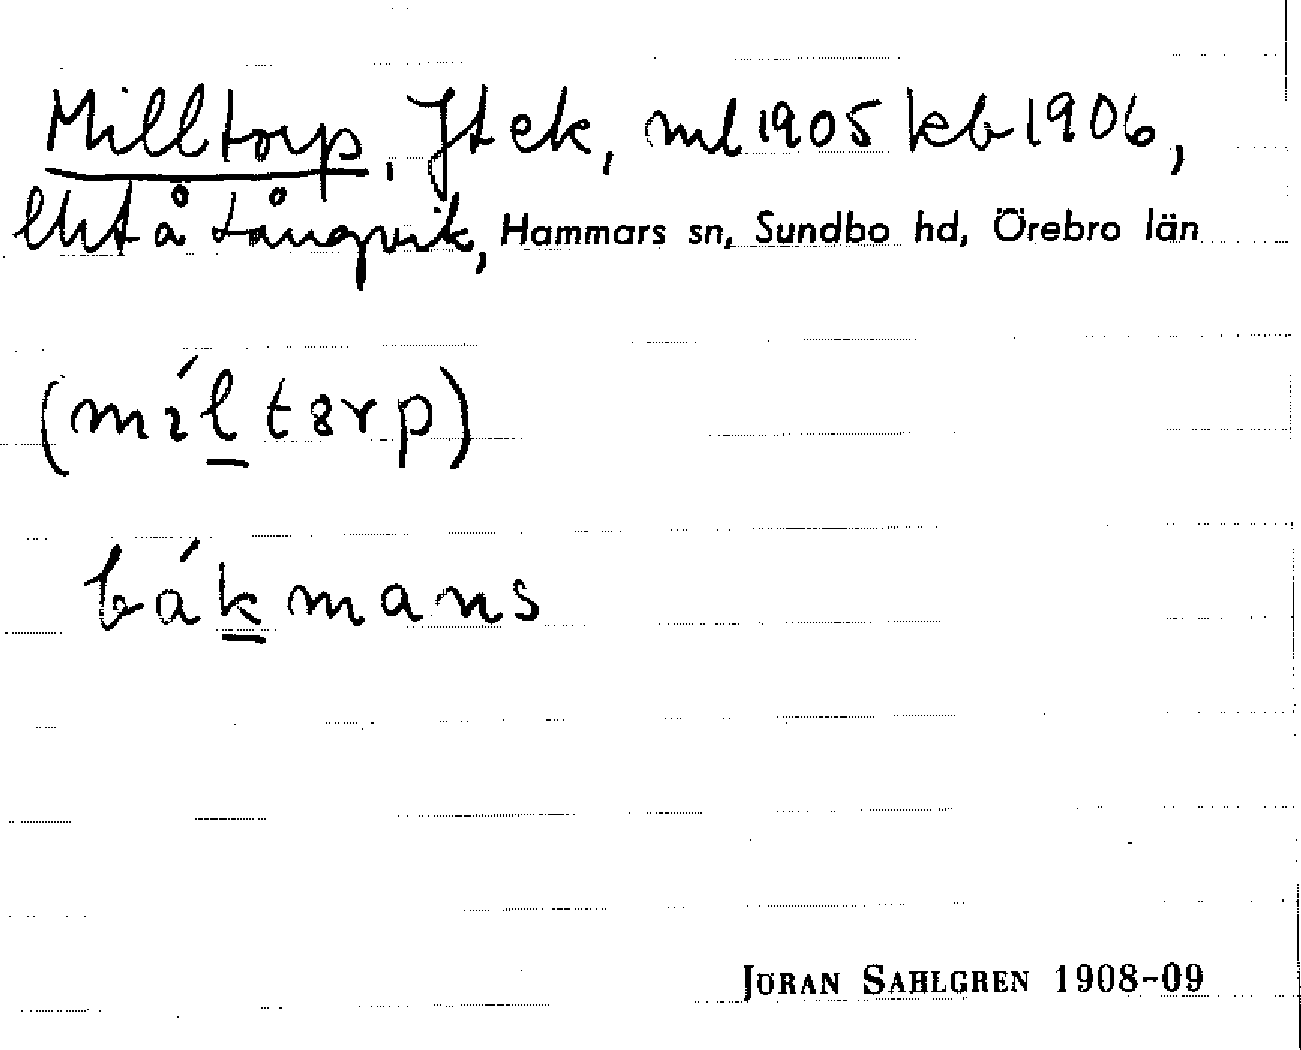 Milltorp, Jt ek, ml 1905 kb 1906,
lht å Långvik, Hammars sn, Sundbo hd, Örebro län
(mıĺ tɜrp)
bák mans
JÖRAN SAHLGREN 1908-09